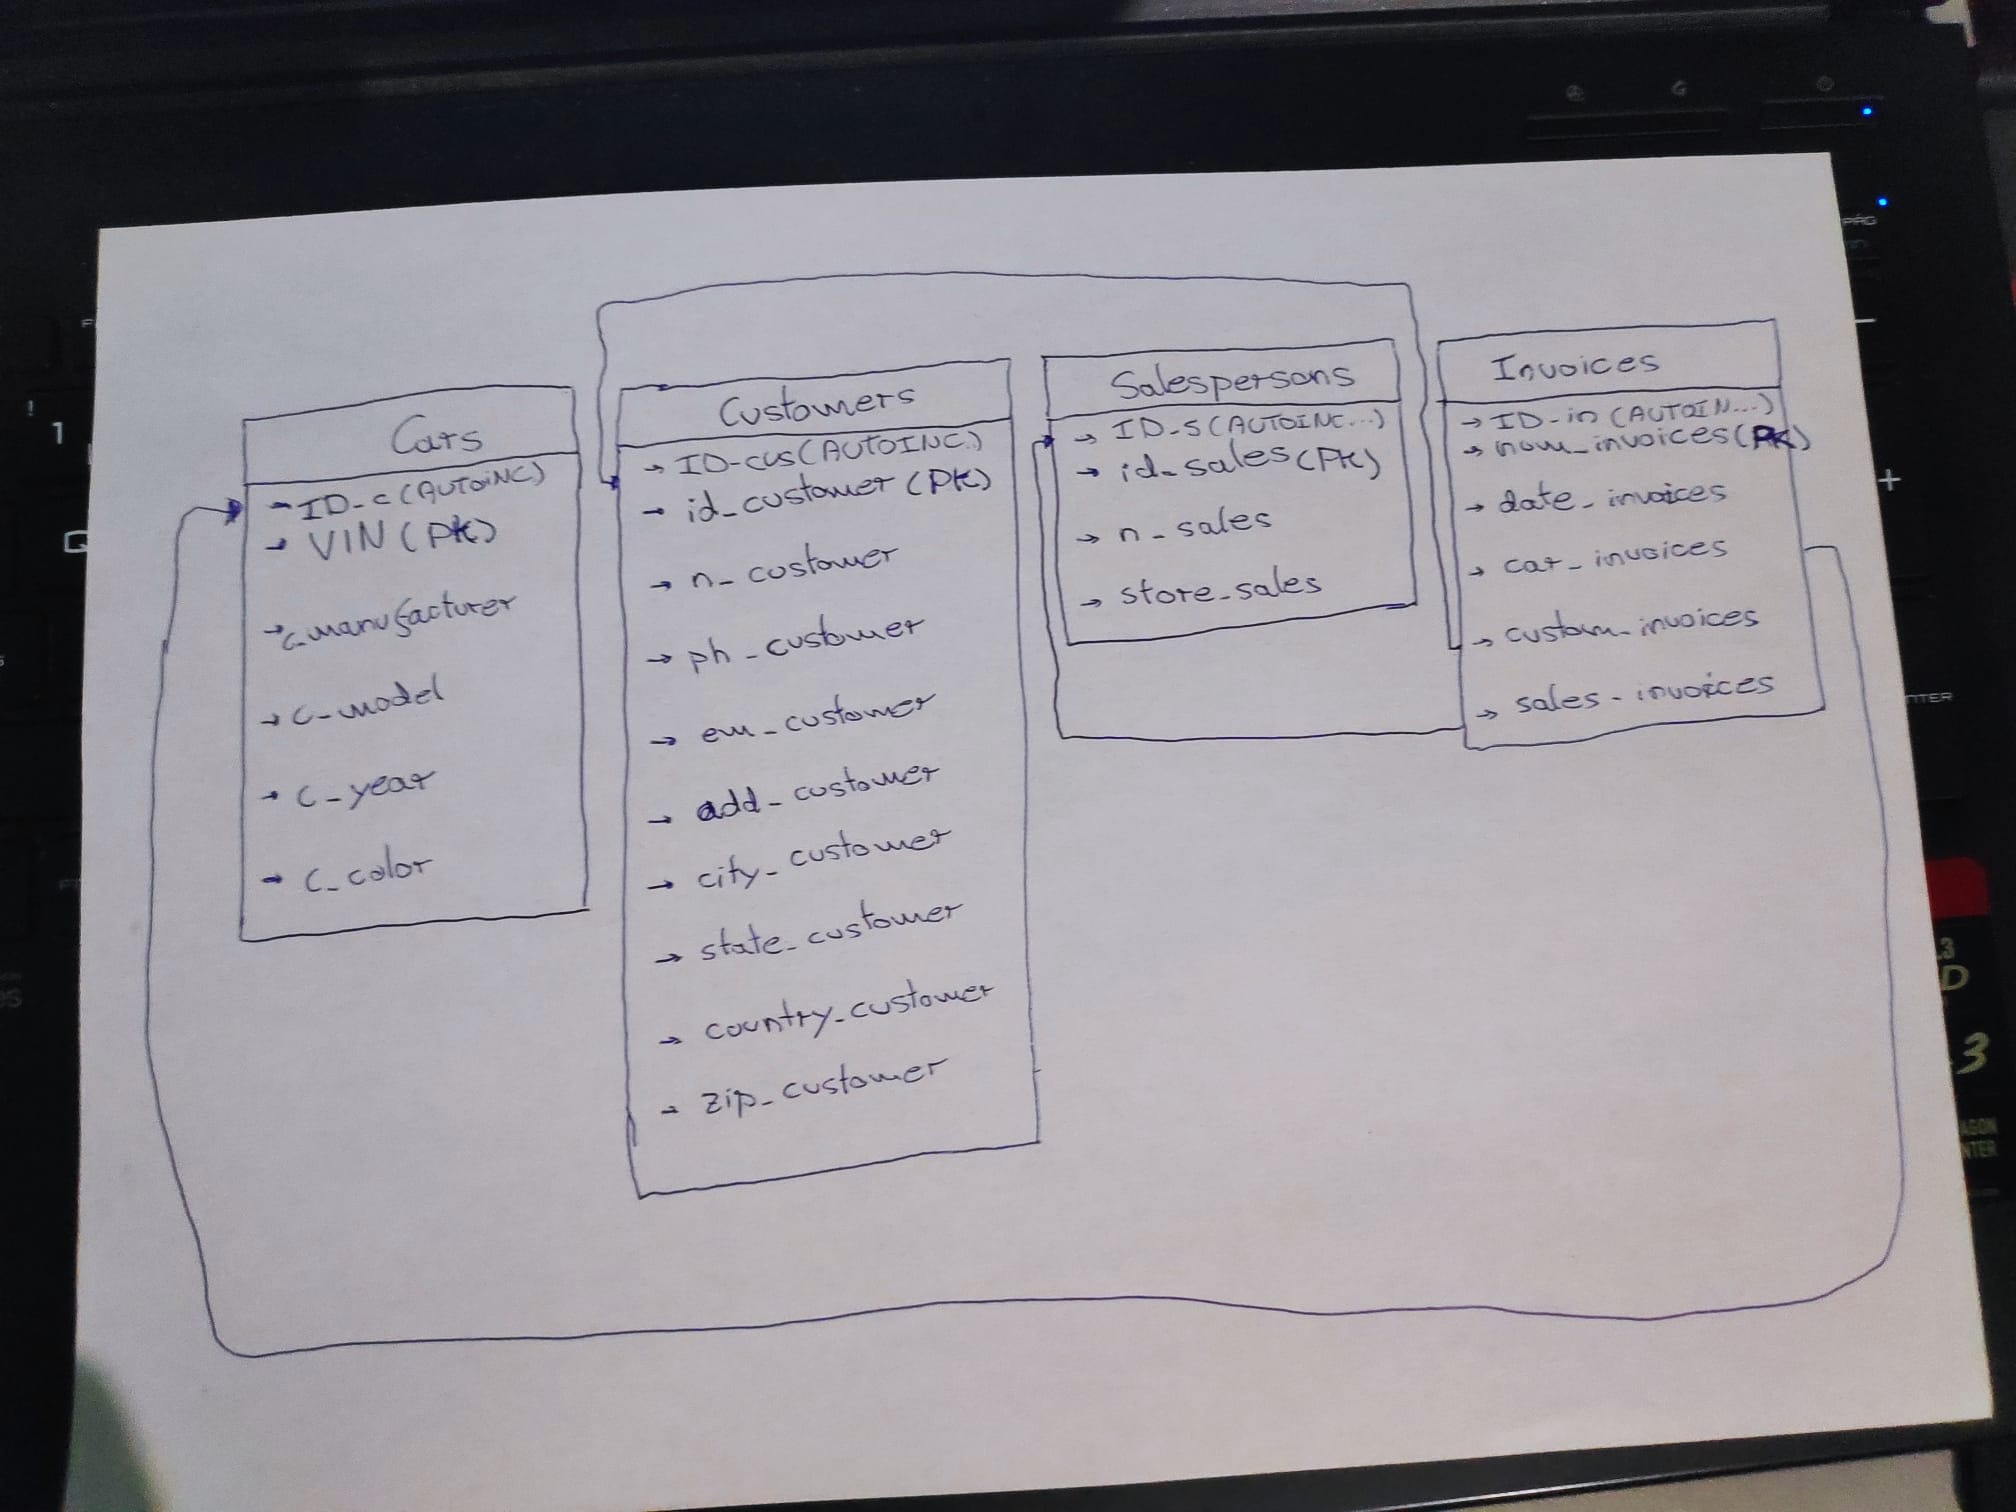 Cars
ID-c (AUTOINC)
VIN (PK)
c_manufacturer
c_model
c_year
c_color
Customers
ID-cus (AUTOINC.)
id_customer (PK)
n_customer
ph_customer
em_customer
add_customer
city_customer
state_customer
country_customer
zip_customer
Salespersons
ID-S (AUTOINC...)
id_sales (PK)
n_sales
store_sales
Invoices
ID-in (AUTOIN...)
num_invoices (PK)
date_invoices
car_invoices
custom_invoices
sales-invoices
!
1
Q
+
PÁG
NTER
.3
D
3
AGON
NTER